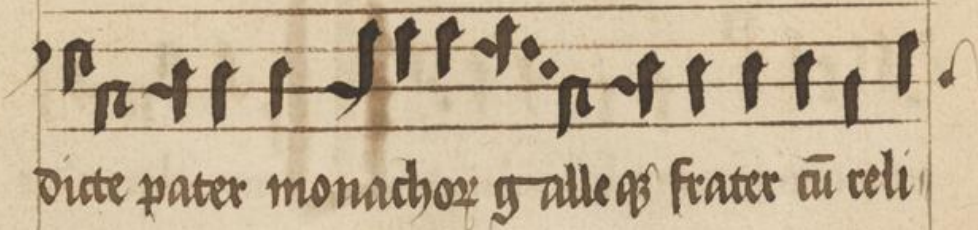 dicte pater monachoꝝ galleqꝫ frater cū reli